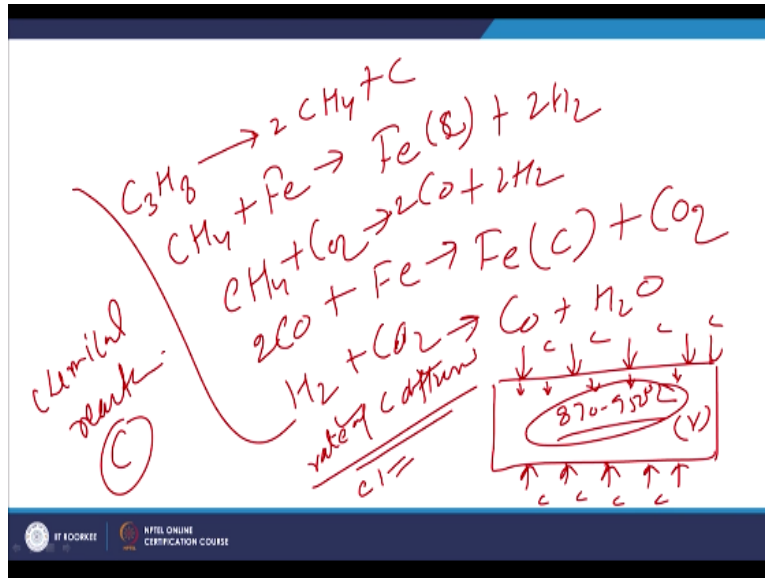 C3H8 → 2 CH4 + C
CH4 + Fe → Fe(C) + 2H2
CH4 + CO2 → 2CO + 2H2
2CO + Fe → Fe(C) + CO2
H2 + CO2 → CO + H2O
chemical
C
rate of C
C C C C
870-950°C
(γ)
C C C C
IIT ROORKEE
NPTEL ONLINE
CERTIFICATION COURSE